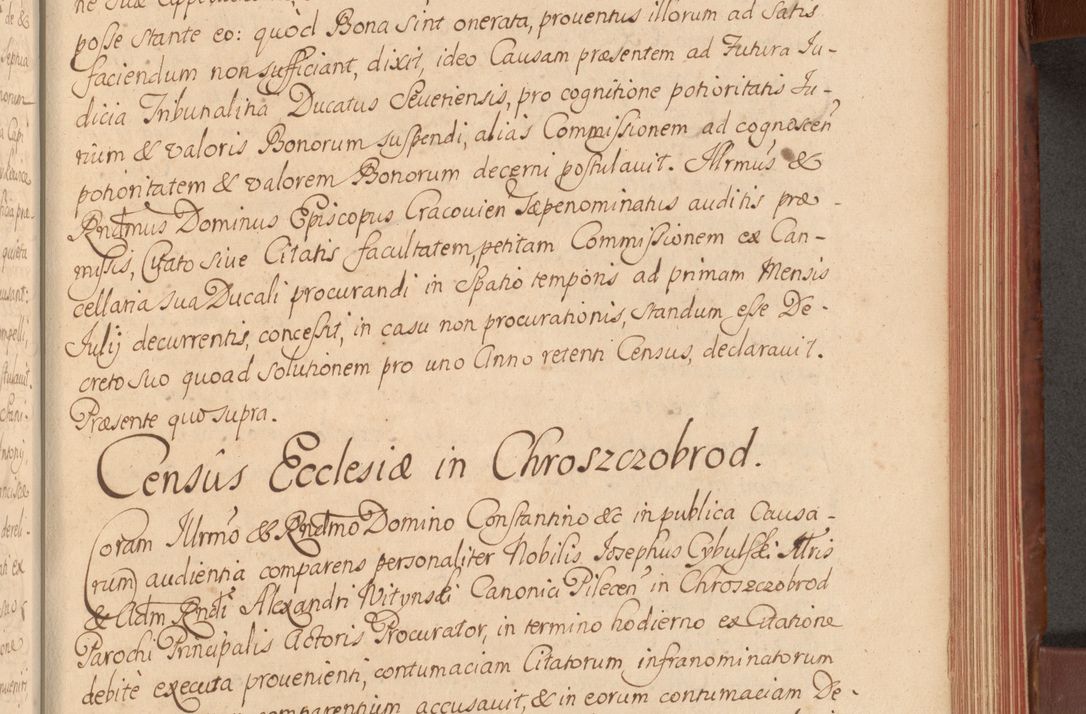 posse stante eo: quòd Bona sint onerata, proventus illorum ad satis
faciendum non sufficiant, dixit, ideo Causam præsentem ad Futura Iu-
dicia Tribunalitia Ducatus Severiensis, pro cognitione potioritatis Iu-
rium & valoris Bonorum suspendi, alias Commissionem ad cognoscen
potioritatem & valorem Bonorum decerni postulavit. Illrmus &
Rndmus Dominus Episcopus Cracovien Sæpenominatus auditis præ-
missis, Citato sive Citatis facultatem, petitam Commissionem ex Can-
cellaria sua Ducali procurandi in Spatio temporis ad primam Mensis
Iulij decurrentis, concessit, in casu non procurationis, standum esse De-
creto suo quoad solutionem pro uno Anno retenti Census, declaravit.
Præsente quo supra.
Censûs Ecclesiæ in Chroszczobrod.
Coram Illrmo & Rndmo Domino Constantino &c in publica Causa-
rum audientia comparens personaliter Nobilis Josephus Cybulski Illris
& Adm Rndi Alexandri Nitynski Canonici Pilecen in Chroszczobrod
Parochi Principalis Actoris Procurator, in termino hodierno ex Citatione
debitè executa provenienti, contumaciam Citatorum infranominatorum
comparentium accusavit, & in eorum contumaciam De-